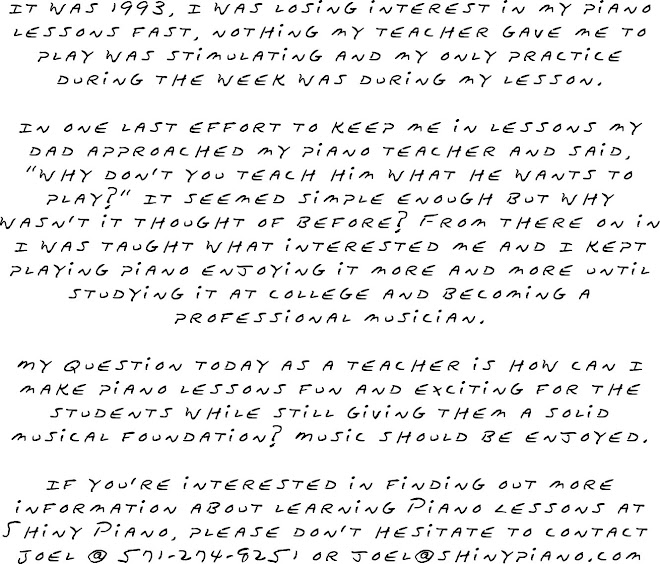 IT WAS 1993, I WAS LOSING INTEREST IN MY PIANO
LESSONS FAST, NOTHING MY TEACHER GAVE ME TO
PLAY WAS STIMULATING AND MY ONLY PRACTICE
DURING THE WEEK WAS DURING MY LESSON.
IN ONE LAST EFFORT TO KEEP ME IN LESSONS MY
DAD APPROACHED MY PIANO TEACHER AND SAID,
"WHY DON'T YOU TEACH HIM WHAT HE WANTS TO
PLAY?" IT SEEMED SIMPLE ENOUGH BUT WHY
WASN'T IT THOUGHT OF BEFORE? FROM THERE ON IN
I WAS TAUGHT WHAT INTERESTED ME AND I KEPT
PLAYING PIANO ENJOYING IT MORE AND MORE UNTIL
STUDYING IT AT COLLEGE AND BECOMING A
PROFESSIONAL MUSICIAN.
MY QUESTION TODAY AS A TEACHER IS HOW CAN I
MAKE PIANO LESSONS FUN AND EXCITING FOR THE
STUDENTS WHILE STILL GIVING THEM A SOLID
MUSICAL FOUNDATION? MUSIC SHOULD BE ENJOYED.
IF YOU'RE INTERESTED IN FINDING OUT MORE
INFORMATION ABOUT LEARNING PIANO LESSONS AT
SHINY PIANO, PLEASE DON'T HESITATE TO CONTACT
JOEL @ 571-274-8251 OR JOEL@SHINYPIANO.COM